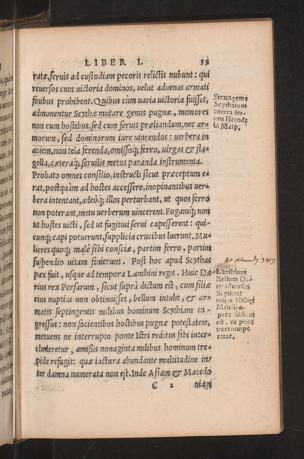 LIBER I.
ratæ, seruis ad custodiam pecoris relictis nubunt: qui
reuersos cum uictoria dominos, uelut aduenas armati
finibus prohibent. Quibus cum uaria uictoria fuisset,
admonentur Scythæ mutare genus pugnæ, memores
non cum hostibus, sed cum seruis præliandum, nec ar
morum, sed dominorum iure uincendos: uerbera in
aciem, non tela ferenda, omissoq; ferro, uirgas & fla
gella, cæteraq; seruilis metus paranda instrumenta.
Probato omnes consilio, instructi sicut præceptum e
rat, postquàm ad hostes accessere, inopinantibus uer
bera intentant, adeoq; illos perturbant, ut quos ferro
non poterant, metu uerberum uincerent. Fugamq; non
ut hostes uicti, sed ut fugitiui serui capesserent: qui
cunq; capi potuerunt, supplicia crucibus luerunt. Mu
lieres quoq; malè sibi consciæ, partim ferro, partim
suspendio uitam finierunt. Post hoc apud Scythas
pax fuit, usque ad tempora Lanthini regis. Huic Da
rius rex Persarum, sicut suprà dictum est, cum filiæ
eius nuptias non obtinuisset, bellum intulit, & ar
matis septingentis milibus hominum Scythiam in
gressus: non facientibus hostibus pugnæ potestatem,
metuens ne interrupto ponte Istri reditus sibi inter
cluderetur, amissis nonaginta milibus hominum tre
pidè refugit: quæ iactura abundante multitudine in
ter damna numerata non est. Inde Asiam & Macedo
C 2 niam
Stratagema
Scytharum
contra ser-
uos
Lanthini
Bellum Da-
rij